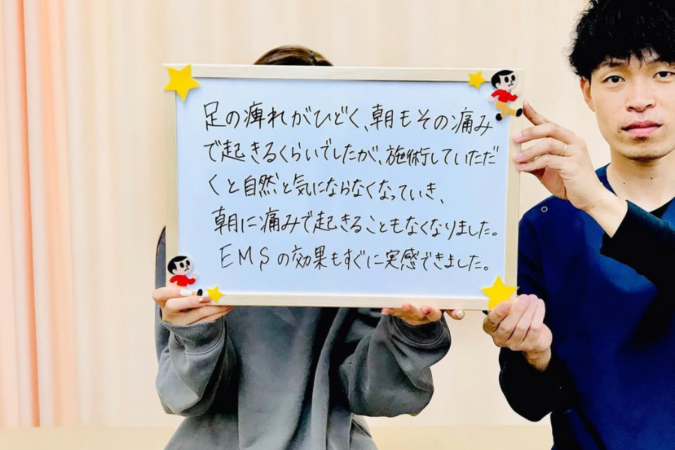 足の痺れがひどく、朝もその痛み
で起きるくらいでしたが、施術していただ
くと自然と気にならなくなっていき、
朝に痛みで起きることもなくなりました。
EMSの効果もすぐに実感できました。